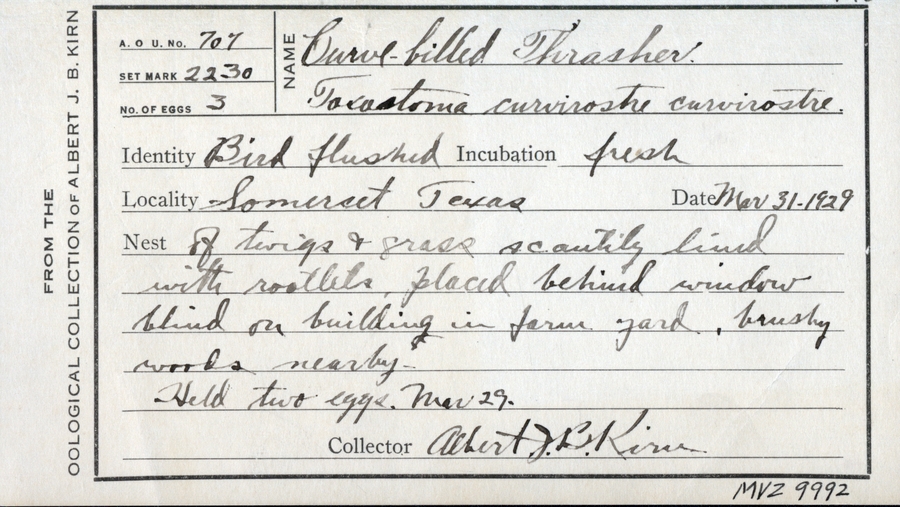 FROM THE
OOLOGICAL COLLECTION OF ALBERT J. B. KIRN
A. O U. No. 707
SET MARK 2230
No. OF EGGS 3
NAME Curve-billed Thrasher.
Toxostoma curvirostre curvirostre.
Identity Bird flushed Incubation fresh
Locality Somerset Texas Date Mar 31-1929
Nest Of twigs & grass scantily lined
with rootlets, placed behind window
blind on building in farm yard, brushy
woods nearby-
Held two eggs. Mar 29.
Collector Albert J. B. Kirn
MVZ 9992